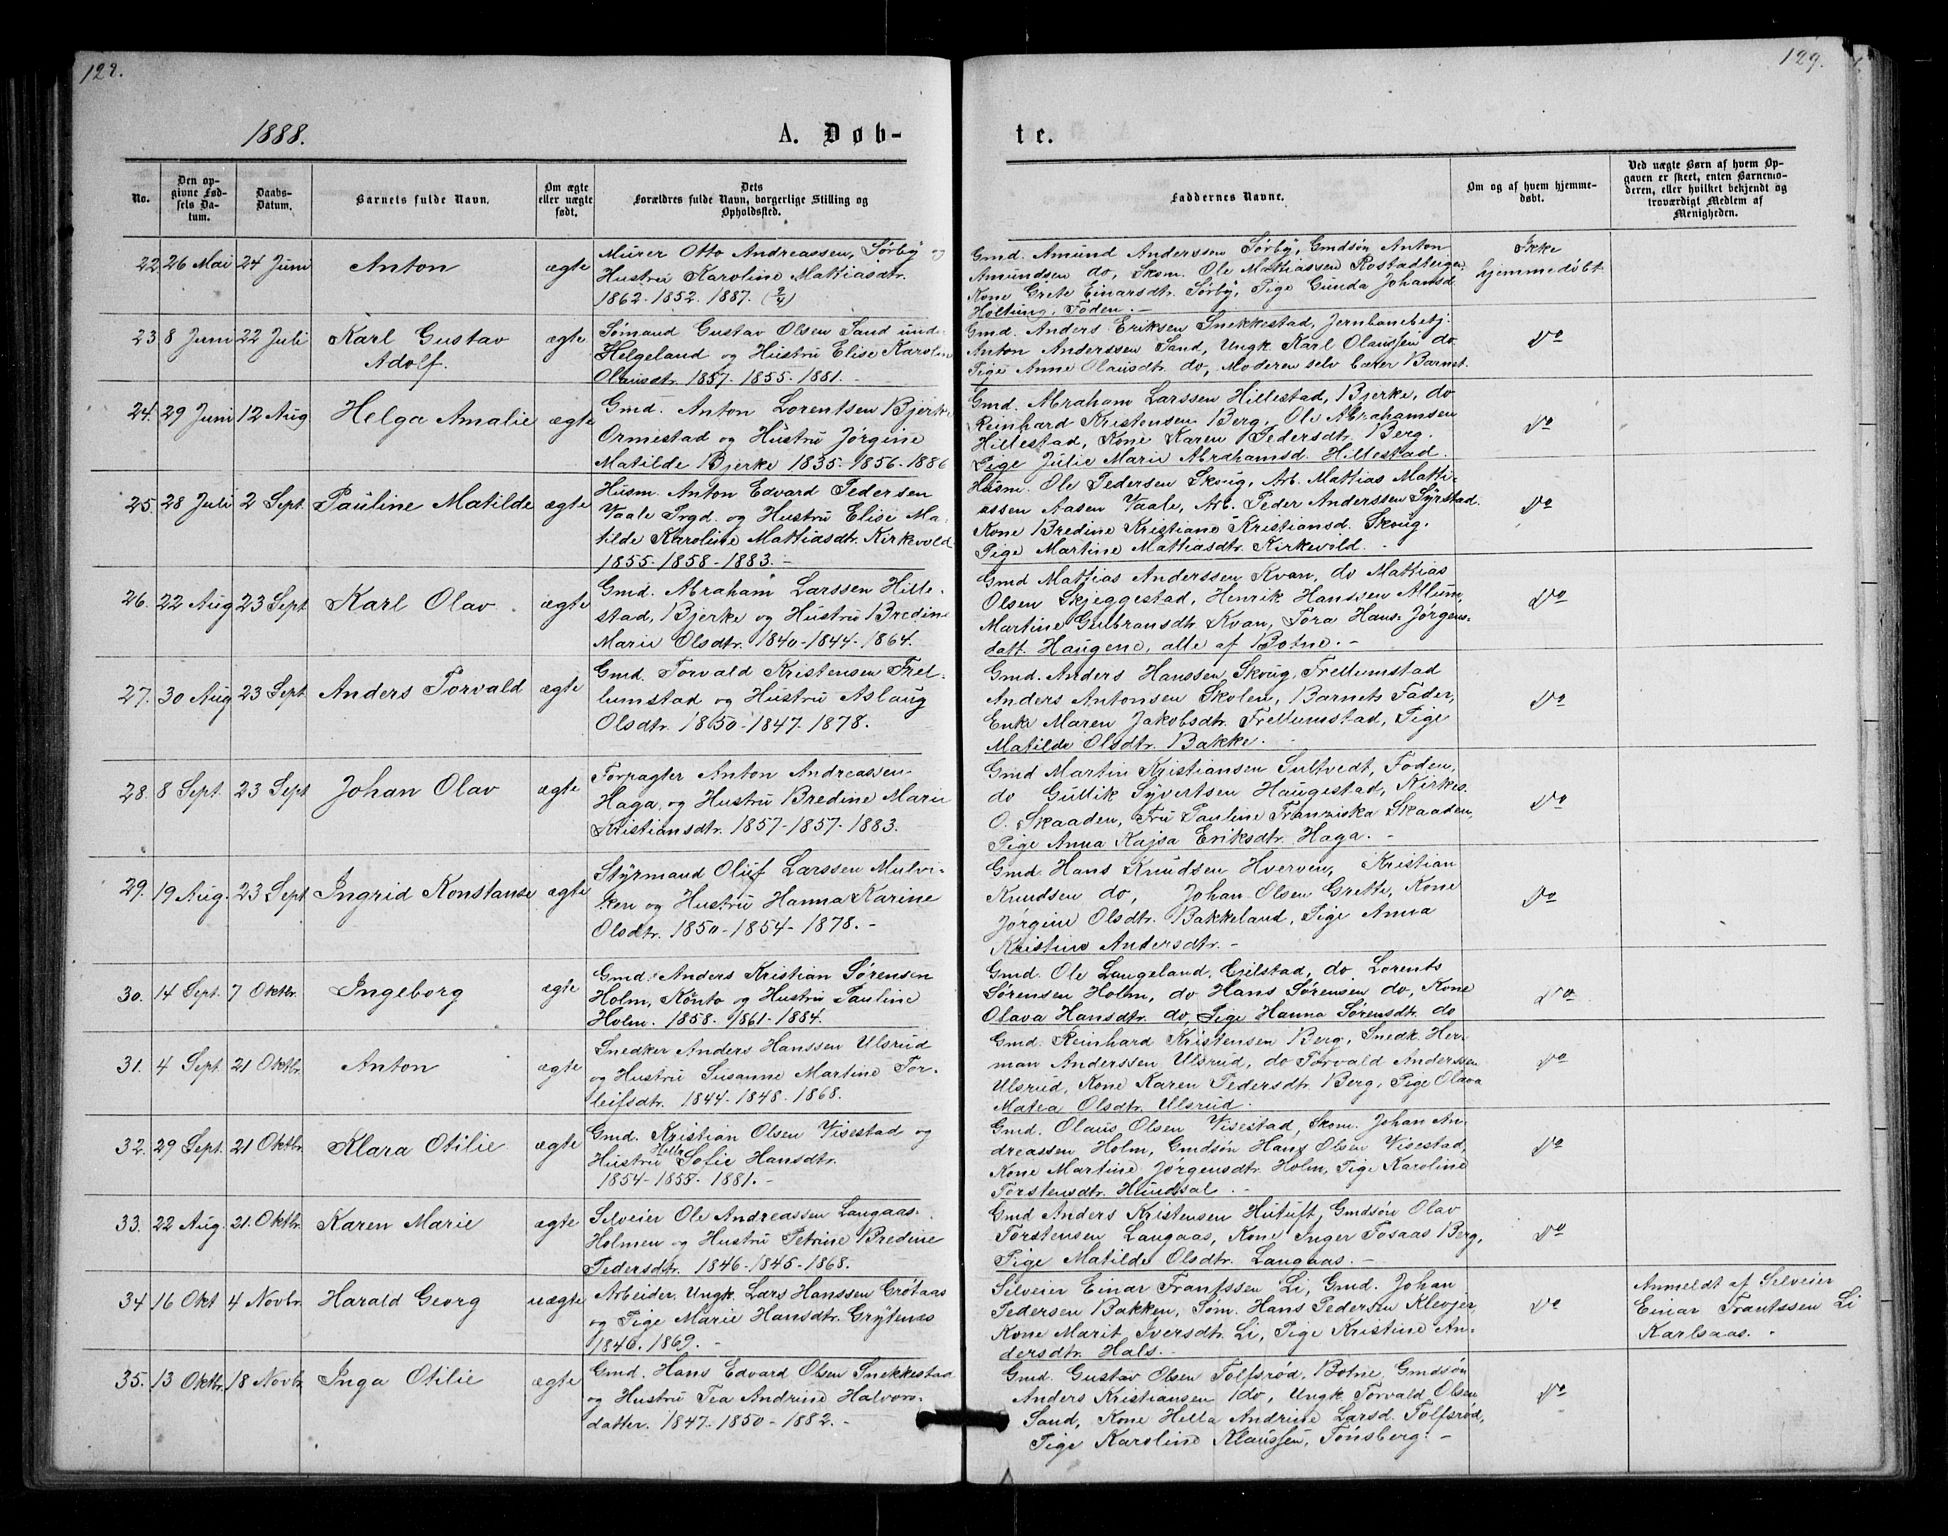 128.
129.
1888.
A. Døb-
te.
No.
Den op-
givne Fød-
sels Da-
tum.
Daabs-
Datum.
Barnets fulde Navn.
Om ægte
eller uægte
født.
Dets
Forældres fulde Navn, borgerlige Stilling og
Opholdssted.
Faddernes Navne.
Om og af hvem hjemme-
døbt.
Ved uægte Børn af hvem Op-
gaven er skeet, enten Barnemo-
deren, eller hvilket bekjendt og
troværdigt Medlem af
Menigheden.
22. 26 Mai 24 Juni Anton ægte
Murer Otto Andreassen, Sørby og
Hustru Karoline Mattiasdtr.
1862-1852. 1887. (2/4)
Gmd. Amund Anderssen Sørby, Gmdsøn Anton
Amundsen do, Skom. Ole Mathiassen Rostadteigen,
Kone Grete Einarsdtr. Sørby, Pige Gunda Johansd.
Holtung, Faden. -
Ikke
hjemmedøbt
23. 8 Juni 22 Juli Karl Gustav
Adolf. ægte
Sømand Gustav Olsen Sand und.
Helgeland og Hustru Elise Karolin
Olausdtr. 1857. 1855. 1881. -
Gmd. Anders Eriksen Snekkestad, Jernbanebetj.
Anton Anderssen Sand, Ungk. Karl Olaussen do
Pige Anne Olausdtr. do, Moderen selv bærer Barnet.
Do
24. 29 Juni 12 Aug Helga Amalie ægte
Gmd. Anton Lorentsen Bjerke
Ormestad og Hustru Jørgine
Matilde Bjerke 1835-1856-1886
Gmd. Abraham Larssen Hillestad, Bjerke, do
Reinhard Kristensen Berg, Ole Abrahamsen
Hillestad, Kone Karen Pedersdtr. Berg.
Pige Julie Marie Abrahamsd. Hillestad.
Do
25. 28 Juli 2 Sept. Pauline Matilde ægte
Husm. Anton Edvard Pedersen
Vaale Prgd. og Hustru Elise Ma-
tilde Karoline Mattiasdtr. Kirkevold
1855-1858-1883. -
Husm. Ole Pedersen Skoug, Arb. Mathias Matti-
assen Aasen Vaale, Arb. Peder Anderssen Syrstad.
Kone Bredine Kristiane Kristiansd. Skoug.
Pige Martine Mattiasdtr. Kirkevold. -
Do
26. 22 Aug 23 Sept Karl Olav. ægte
Gmd. Abraham Larssen Hille-
stad, Bjerke og Hustru Bredine
Marie Olsdtr. 1840-1844-1864.
Gmd Mattias Anderssen Kvan, do Mathias
Olsen Skjeggestad, Henrik Hanssen Allum,
Martine Gulbransdtr. Kvan, Tora Hans-Jørgens-
datt. Haugene, alle af Botne. -
Do
27. 30 Aug 23 Sept. Anders Torvald ægte
Gmd. Torvald Kristensen Frel-
lumstad og Hustru Aslaug
Olsdtr. 1850-1847-1878.
Gmd. Anders Hanssen Skoug, Frellumstad
Anders Antonsen Skolen, Barnets Fader,
Enke Maren Jakobsdtr. Frellumstad, Pige
Matilde Olsdtr. Bakke. -
Do
28. 8 Sept. 23 Sept Johan Olav ægte
Forpagter Anton Andreassen
Haga, og Hustru Bredine Marie
Kristiansdtr. 1857-1857-1883.
Gmd Martin Kristiansen Sultvedt, Foden,
do Gullik Syvertsen Haugestad, Kirkes.
O. Skaaden, Fru Pauline Franziska Skaaden,
Pige Anna Kajsa Eriksdtr. Haga. -
Do
29. 19 Aug. 23 Sept Ingrid Konstanse ægte
Styrmand Oluf Larssen Mulvi-
ken og Hustru Hanna Karine
Olsdtr. 1850-1854-1878. -
Gmd. Hans Knudsen Hverven, Kristian
Knudsen do, Johan Olsen Grette, Kone
Jørgine Olsdtr. Bakkeland, Pige Anna
Kristine Andersdtr. -
Do
30. 14 Sept. 7 Oktbr. Ingeborg ægte
Gmd. Anders Kristian Sørensen
Holm, Konto og Hustru Pauline
Holm. 1858. 1861-1884.
Gmd. Ole Langeland, Eielstad, do Lorents
Sørensen Holm, do Hans Sørensen do, Kone
Olava Hansdtr. do Pige Hanna Sørensdtr. do
Do
31. 4 Sept. 21 Oktbr. Anton ægte
Snedker Anders Hanssen Ulsrud
og Hustru Susanne Martine Tor-
leifsdtr. 1844-1848-1868.
Gmd. Reinhard Kristensen Berg, Snedk. Her-
man Anderssen Ulsrud, do Torvald Anderssen
Ulsrud, Kone Karen Pedersdtr. Berg, Pige Olava
Matea Olsdtr. Ulsrud.
Do
32. 29 Sept. 21 Oktbr. Klara Otilie ægte
Gmd. Kristian Olsen Visestad og
Hustru Helle Sofie Hansdtr.
1854-1858-1881. -
Gmd. Olaus Olsen Visestad, Skom. Johan An-
dreassen Holm, Gmdsøn Hans Olsen Visestad,
Kone Martine Jørgensdtr. Holm, Pige Karoline
Torstensdtr. Hundsal. -
Do
33. 22 Aug. 21. Oktbr. Karen Marie ægte
Selveier Ole Andreassen Langaas-
Holmen og Hustru Petrine Bredine
Pedersdtr. 1846-1845-1868.
Gmd Anders Kristensen Hutuft, Gmdsøn Olav
Torstensen Langaas, Kone Inger Tosaas Berg,
Pige Matilde Olsdtr. Langaas. -
Do
34 16 Okt 4 Novbr. Harald Georg uægte
Arbeider, Ungk. Lars Hanssen Grøtaas
og Pige Marie Hansdtr. Grytenæs
1846. 1869. -
Selveier Einar Frantssen Li, Gmd. Johan
Pedersen Bakken, Søm. Hans Pedersen Klevjer,
Kone Marit Iversdtr. Li, Pige Kristine An-
dersdtr. Hals. -
Do
Anmeldt af Selveier
Einar Frantssen Li
Karlsaas. -
35. 13 Oktbr. 18 Novbr. Inga Otilie ægte
Gmd. Hans Edvard Olsen Snekkestad
og Hustru Tea Andrine Halvors-
datter. 1847-1850-1882. -
Gmd. Gustav Olsen Tolfsrød, Botne, Gmdsøn
Anders Kristiansen do, Ungk Torvald Olsen
Sand, Kone Hella Andrine Larsd. Tolfsrød,
Pige Karoline Klaussen, Tønsberg. -
Do